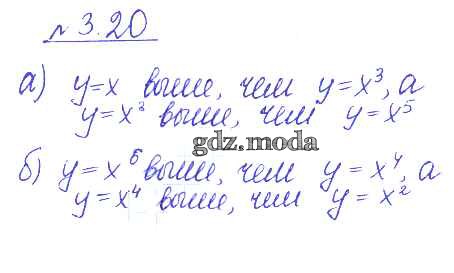 № 3.20
а) y=x выше, чем y=x³, а
y=x³ выше, чем y=x⁵
gdz.moda
б) y=x⁶ выше, чем y=x⁴, а
y=x⁴ выше, чем y=x²